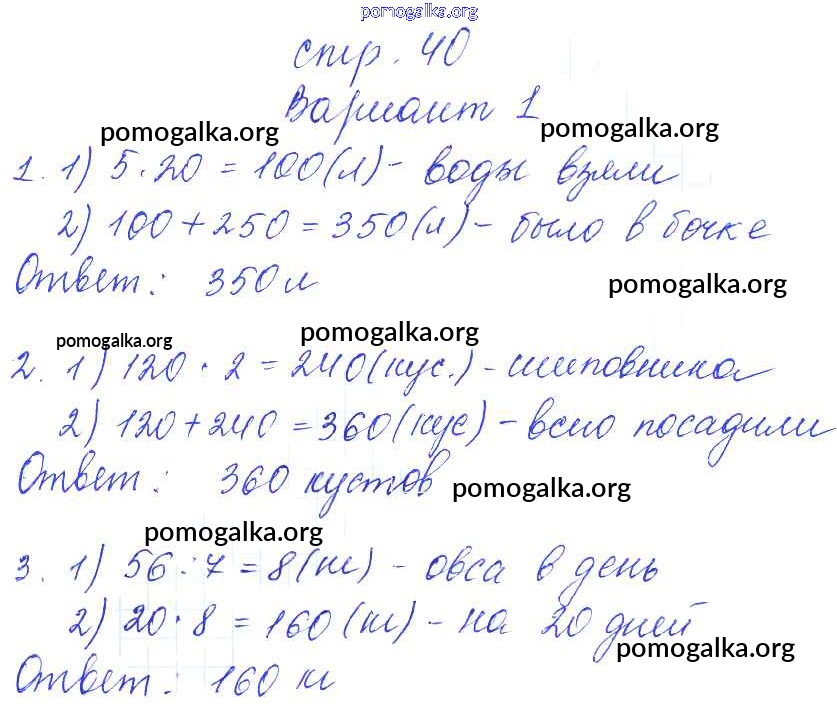 pomogalka.org
стр. 40
Вариант 1
pomogalka.org pomogalka.org
1. 1) 5 · 20 = 100 (л) - воды взяли
2) 100 + 250 = 350 (л) - было в бочке
Ответ: 350 л
pomogalka.org
pomogalka.org pomogalka.org
2. 1) 120 · 2 = 240 (кус.) - шиповника
2) 120 + 240 = 360 (кус) - всего посадили
Ответ: 360 кустов
pomogalka.org
pomogalka.org
3. 1) 56 : 7 = 8 (кг) - овса в день
2) 20 · 8 = 160 (кг) - на 20 дней
pomogalka.org
Ответ: 160 кг